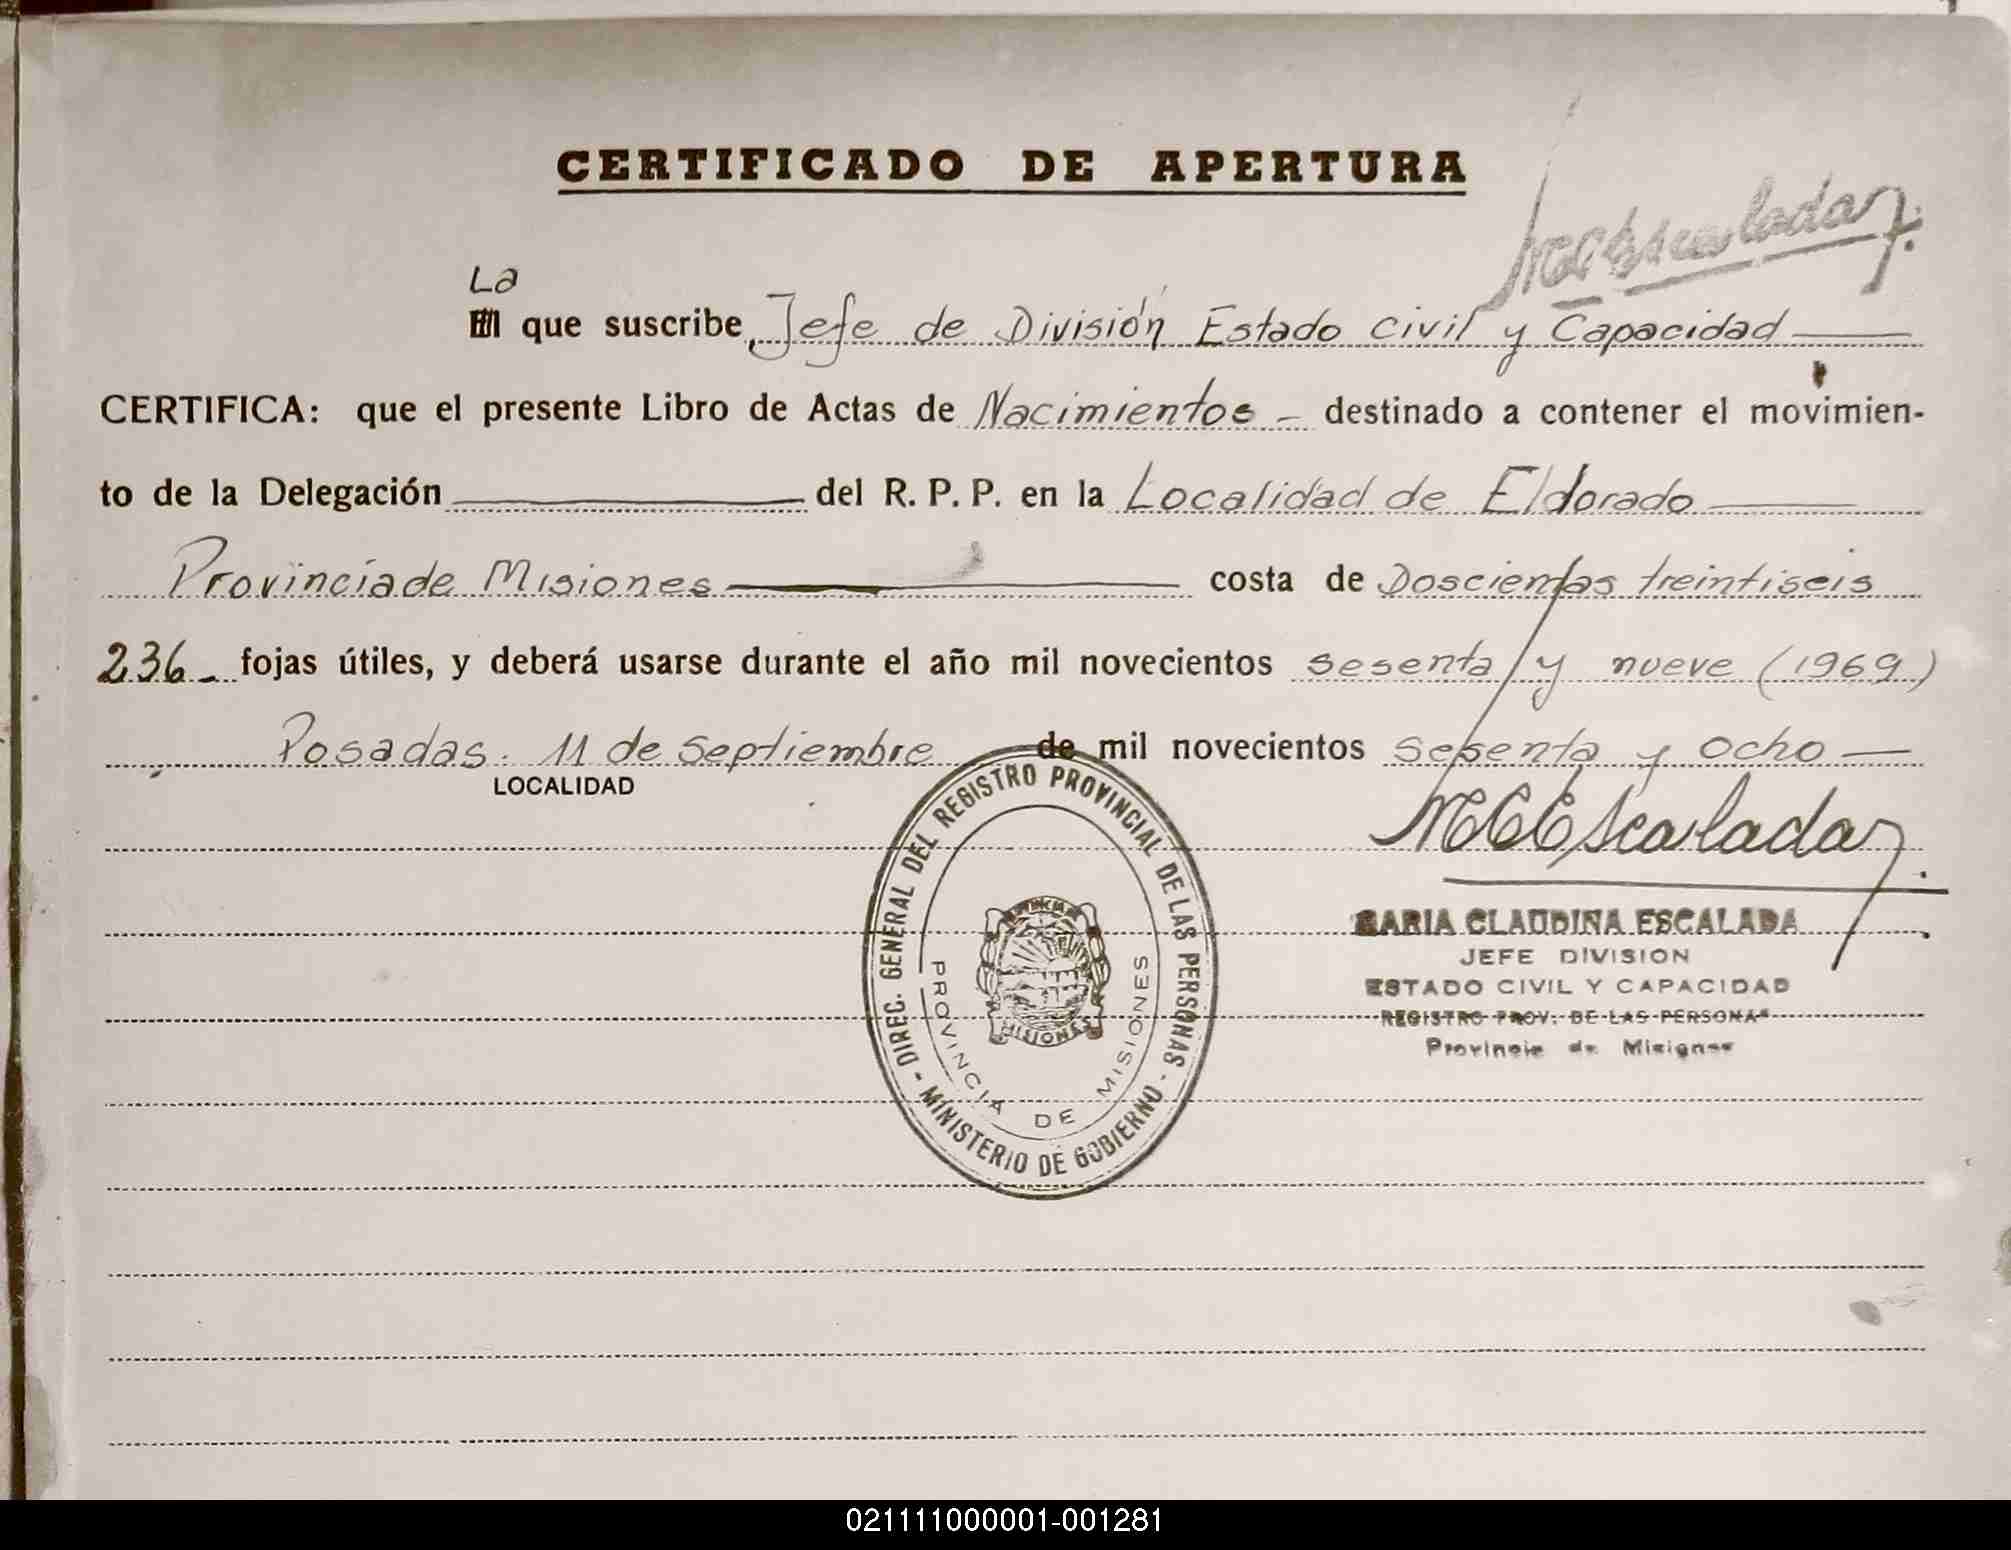 CERTIFICADO DE APERTURA
MCEscalada
La
El que suscribe, Jefe de División Estado Civil y Capacidad
CERTIFICA: que el presente Libro de Actas de Nacimientos - destinado a contener el movimien-
to de la Delegación del R. P. P. en la Localidad de Eldorado
Provincia de Misiones costa de Doscientas treintiseis
236 - fojas útiles, y deberá usarse durante el año mil novecientos sesenta y nueve (1969)
Posadas. 11 de Septiembre de mil novecientos sesenta y ocho
LOCALIDAD
MCEscalada
MARIA CLAUDINA ESCALADA
JEFE DIVISION
ESTADO CIVIL Y CAPACIDAD
REGISTRO PROV. DE LAS PERSONAS
Provincia de Misiones
DIREC. GENERAL DEL REGISTRO PROVINCIAL DE LAS PERSONAS - MINISTERIO DE GOBIERNO -
PROVINCIA DE MISIONES
MISIONES
021111000001-001281